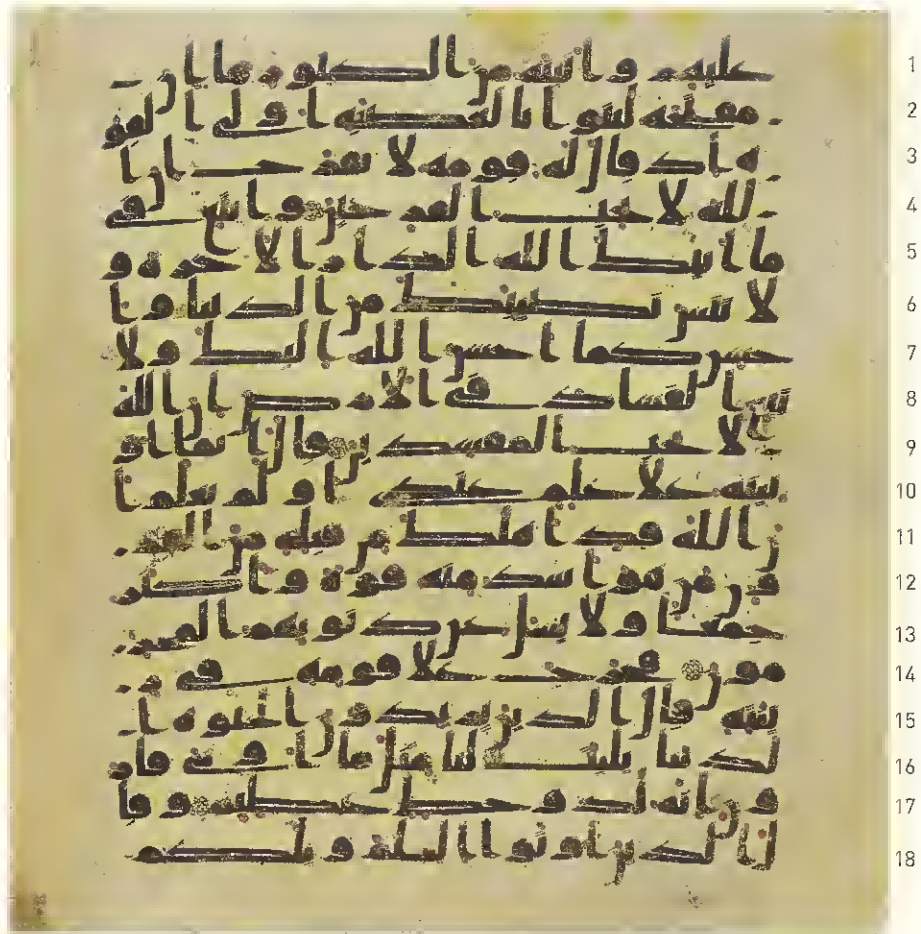 عليهم واتينه من الكنوز ما ان
مفتحه لتنوا بالعصبه اولي القو
ه اذ قال له قومه لا تفرح ان ا
لله لا يحب الفرحين وابتغ في
ما اتيك الله الدار الاخره و
لا تنس نصيبك من الدنيا وا
حسن كما احسن الله اليك ولا
تبغ الفساد في الارض ان الله
لا يحب المفسدين قال انما او
تيته علا علم عندي اولم يعلم ا
ن الله قد اهلك من قبله من القر
ون من هو اشد منه قوه واكثر
جمعا ولا يسل عن ذنوبهم المجر
مون فخرج علا قومه في ز
ينته قال الذين يريدون الحيوه ا
لدنيا يليت لنا مثل ما اوتي قار
ون انه لذو حظ عظيم وقا
ل الذين اوتوا العلم ويلكم
1
2
3
4
5
6
7
8
9
10
11
12
13
14
15
16
17
18